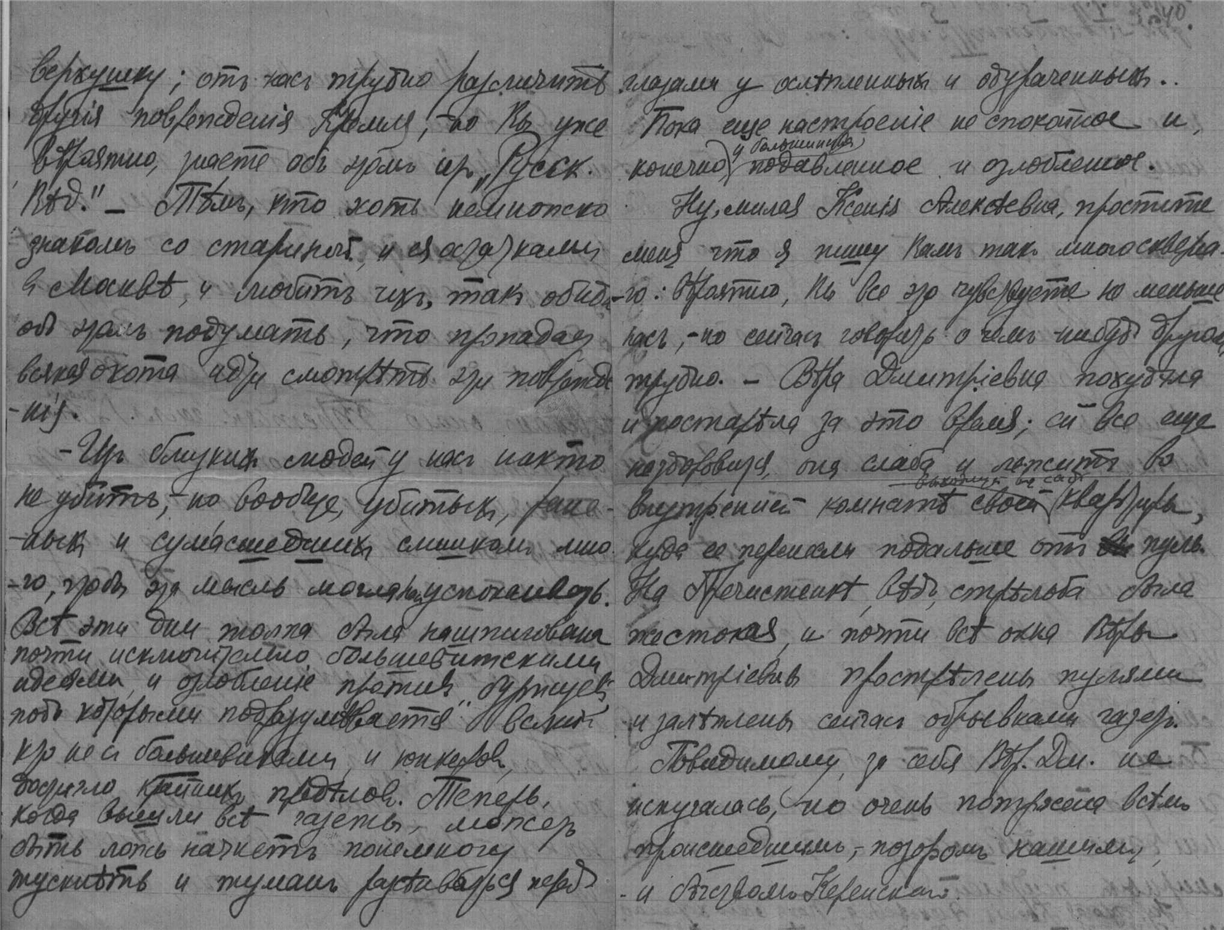 верхушку; отъ насъ трудно различить
другія поврежденія Кремля, – но Вы уже
вѣроятно, знаете объ этомъ изъ „Русск.
Вѣд." – Тѣмъ, кто хоть немножко
знакомъ со стариной, и ея остатками
въ Москвѣ, и любитъ ихъ, такъ обидно
объ этомъ подумать, что пропадаетъ
всякая охота идти смотрѣть эти поврежде
-нія.
– Изъ близкихъ людей у насъ никто
не убитъ, – но вообще, убитыхъ, ране-
-ныхъ и сумасшедшихъ слишкомъ мно-
-го, чтобъ эта мысль могла успокаивать.
Всѣ эти дни толпа была нашпигована
почти исключительно большевитскими
идеями, и озлобленіе противъ буржуевъ
подъ которыми подразумѣвается всякій
кто не съ большевиками, и юнкеровъ,
достигло крайнихъ предѣловъ. Теперь,
когда вышли всѣ газеты, можетъ
быть ложь начнетъ понемногу
тускнѣть и туманъ разсѣиваться передъ
глазами у ослѣпленныхъ и одураченныхъ..
Пока еще настроеніе не спокойное и,
и большинства
конечно, подавленное и озлобленное.
Ну, милая Ксенія Алексѣевна, простите
меня что я пишу Вамъ такъ много сквернa-
го: вѣроятно, Вы все это чувствуете не меньше
насъ, – но сейчасъ говорить о чемъ-нибудь другомъ
трудно. – Вѣра Дмитріевна похудѣла
и постарѣла за это время; ей все еще
нездоровится, она слаба и лежитъ во
внутренней комнатѣ своей квартиры,
куда ее перенесли подальше отъ пуль.
На Пречистенкѣ, вѣдь, стрѣльба была
жестокая, и почти всѣ окна Вѣры
Дмитріевны прострѣлены пулями
и залѣплены сейчасъ обрывками газетъ.
Повидимому, за себя Вѣр. Дм. не
испугалась, но очень потрясена всѣмъ
происшедшимъ, – позоромъ нашимъ,
– и бѣгствомъ Керенскаго.